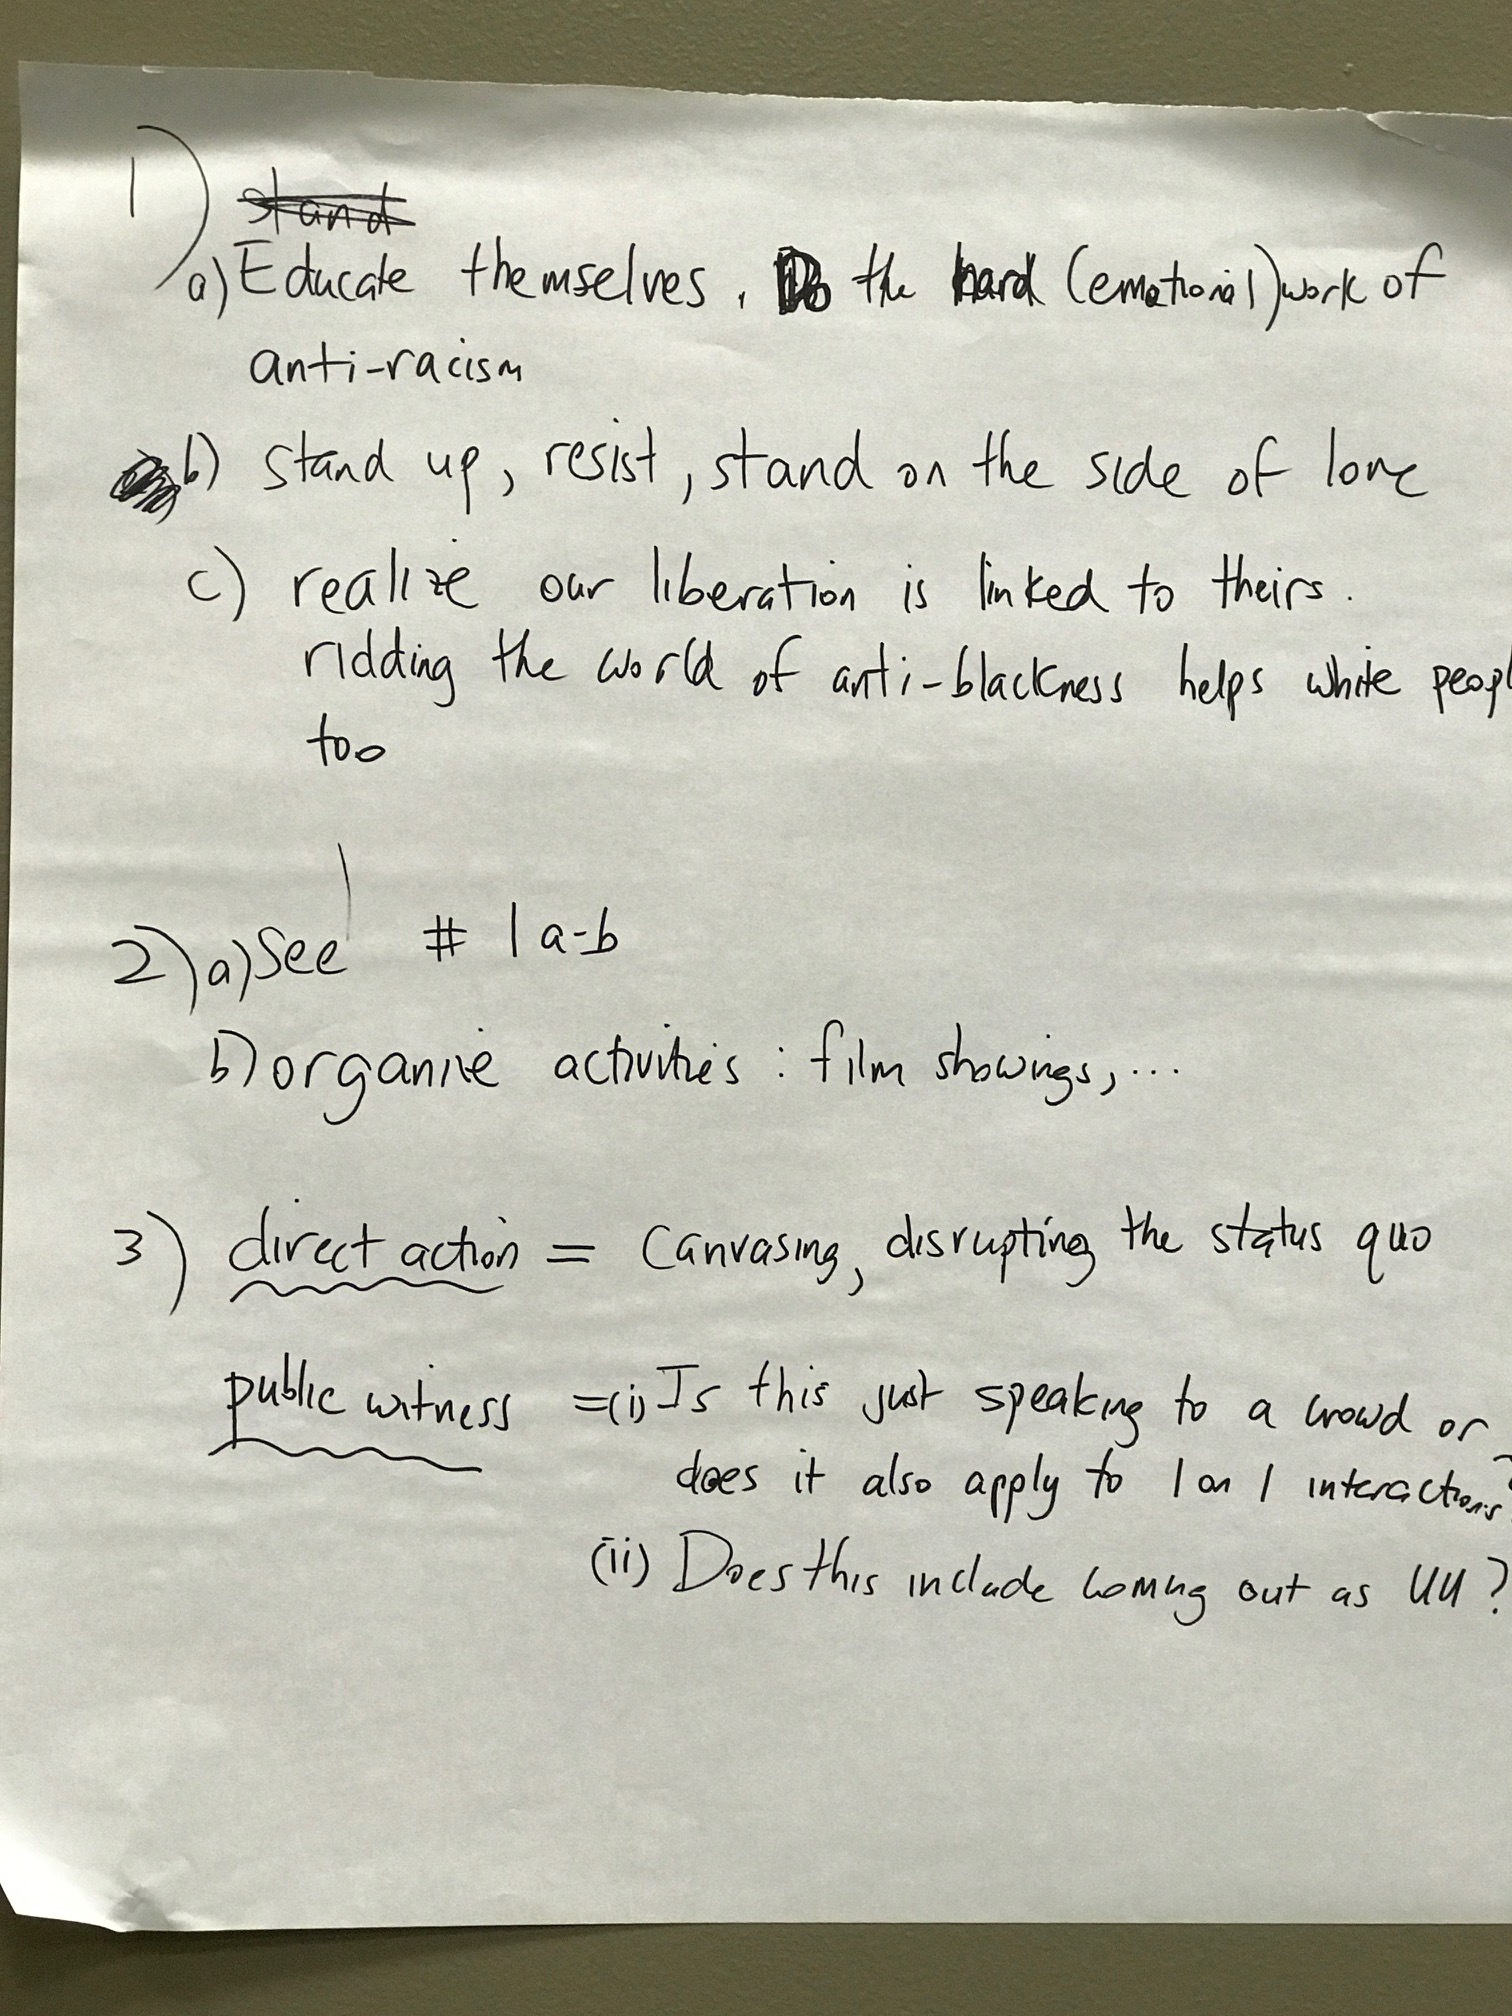 1) stand
a) Educate themselves. Do the hard (emotional) work of
anti-racism
b) stand up, resist, stand on the side of love
c) realize our liberation is linked to theirs.
ridding the world of anti-blackness helps white peopl
too
2) a) See # 1 a-b
b) organize activities : film showings, ...
3) direct action = Canvasing, disrupting the status quo
public witness = (i) Is this just speaking to a crowd or
does it also apply to 1 on 1 interactions?
(ii) Does this include coming out as UU?